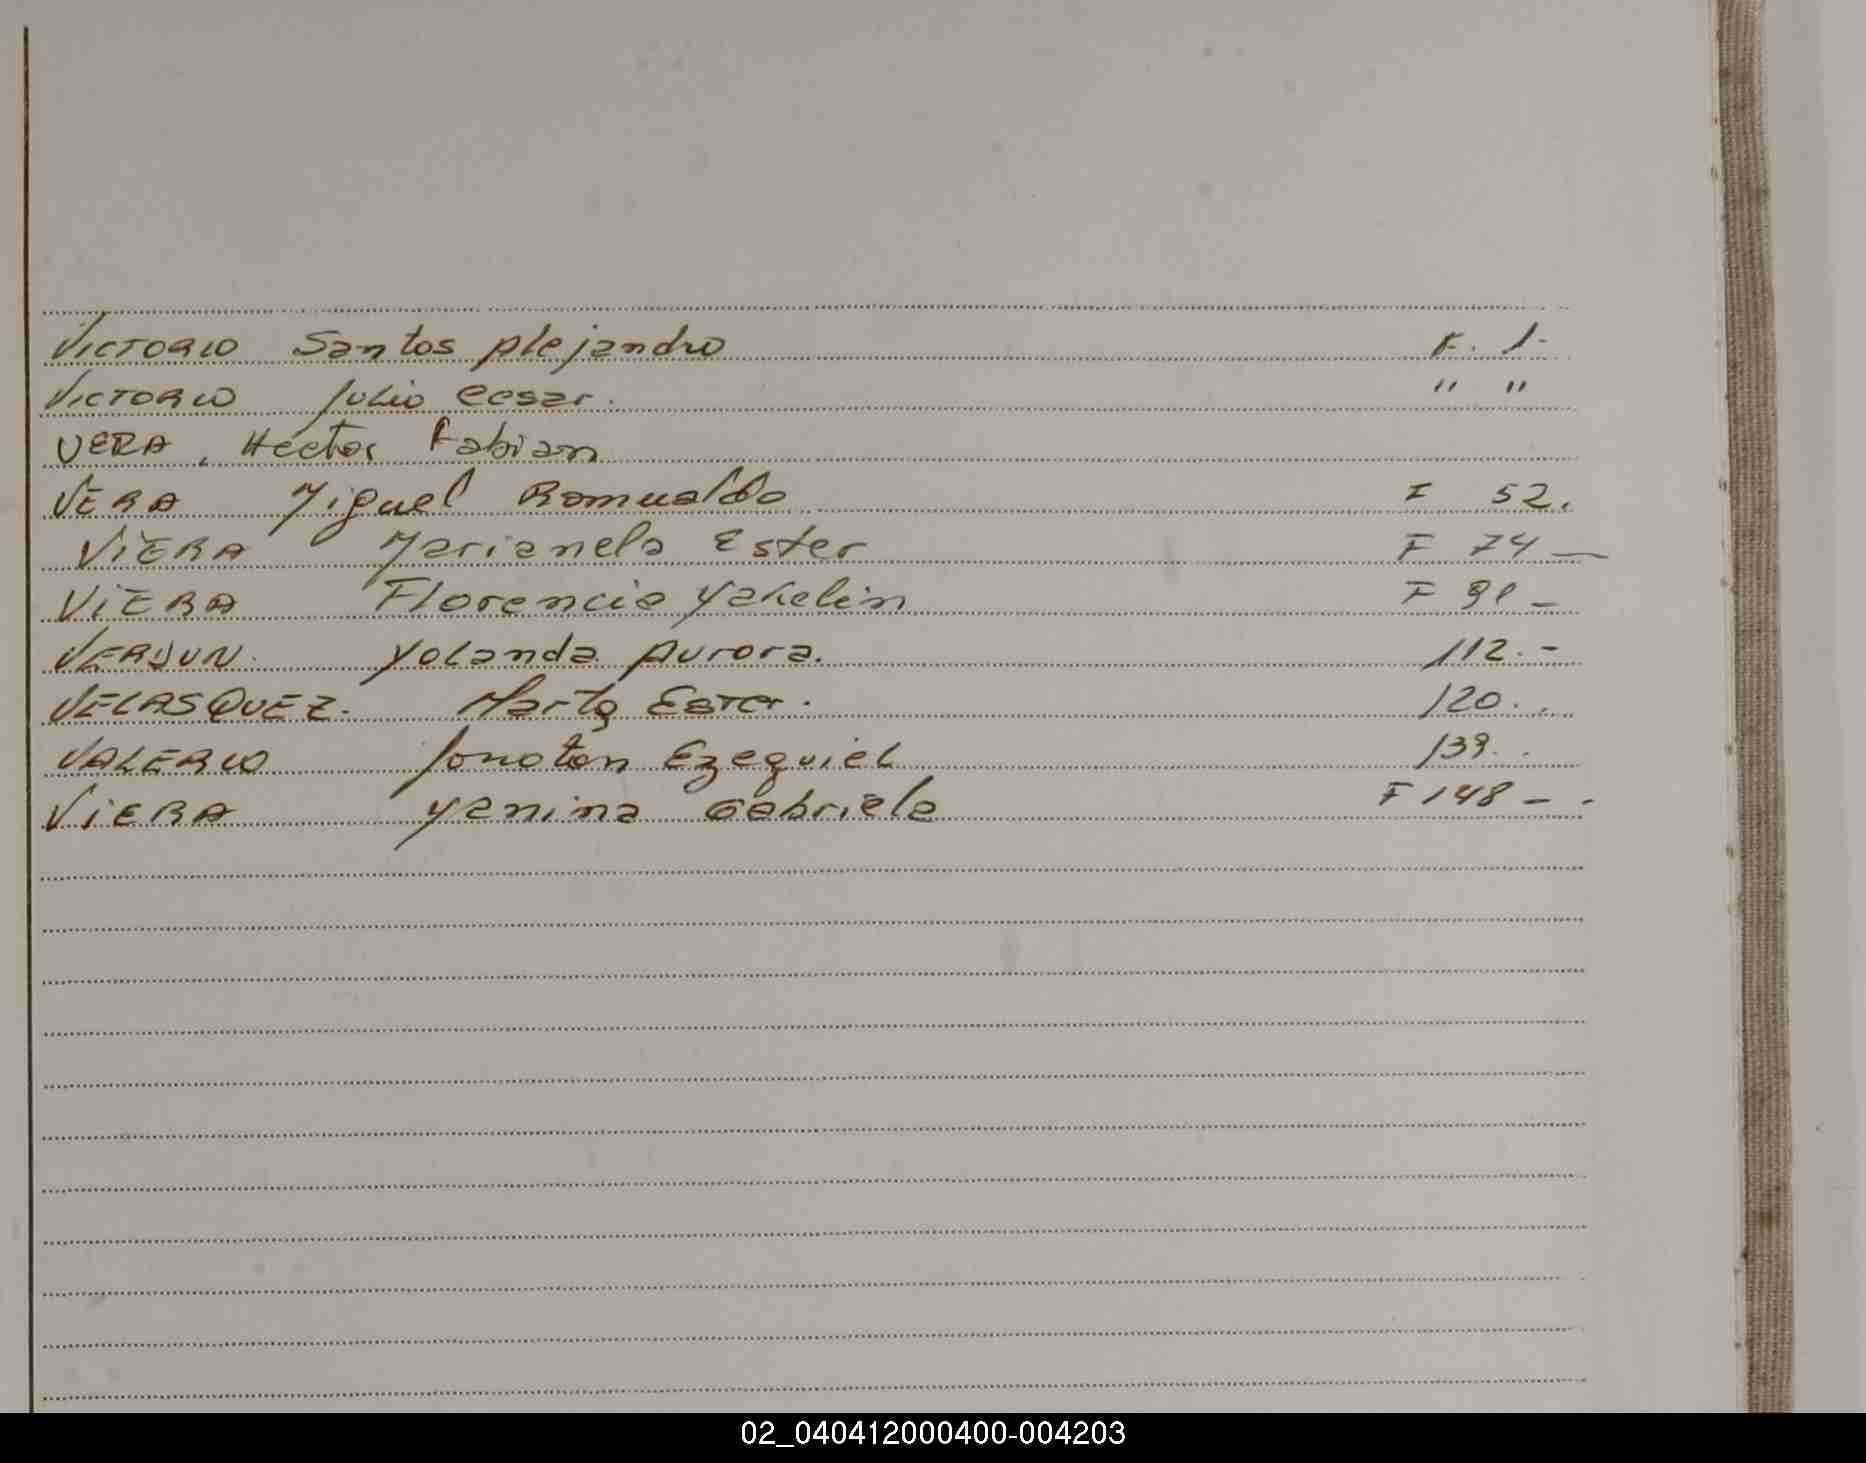 VICTORIO Santos Alejandro F. 1-
VICTORIO Julio Cesar. " "
VERA, Hector Fabian
VERA Miguel Romualdo F 52.
VIERA Marianela Ester F 74 —
VIERA Florencia Yakelin F 91 -
Yolanda Aurora. 112. -
VELASQUEZ. Marta Ester. 120. .
VALERIO Jonatan Ezequiel 139. .
VIERA Yanina Gabriela F 148 - .
02_040412000400-004203